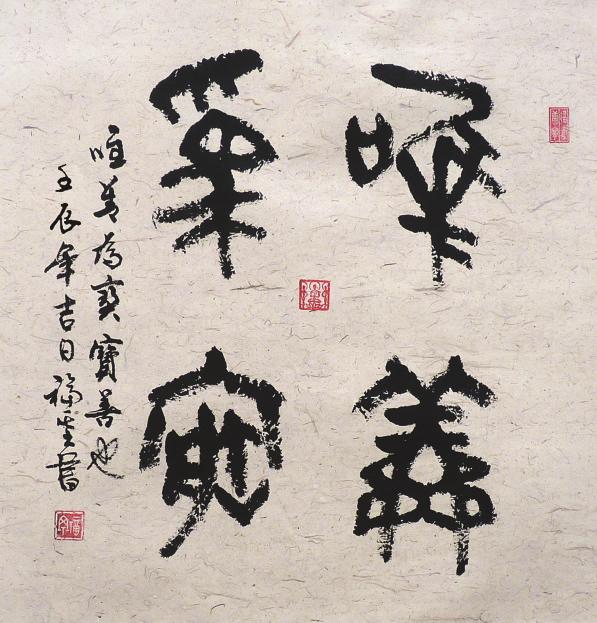 唯善
為寶
唯善為寶寶善也
壬辰年吉日福書